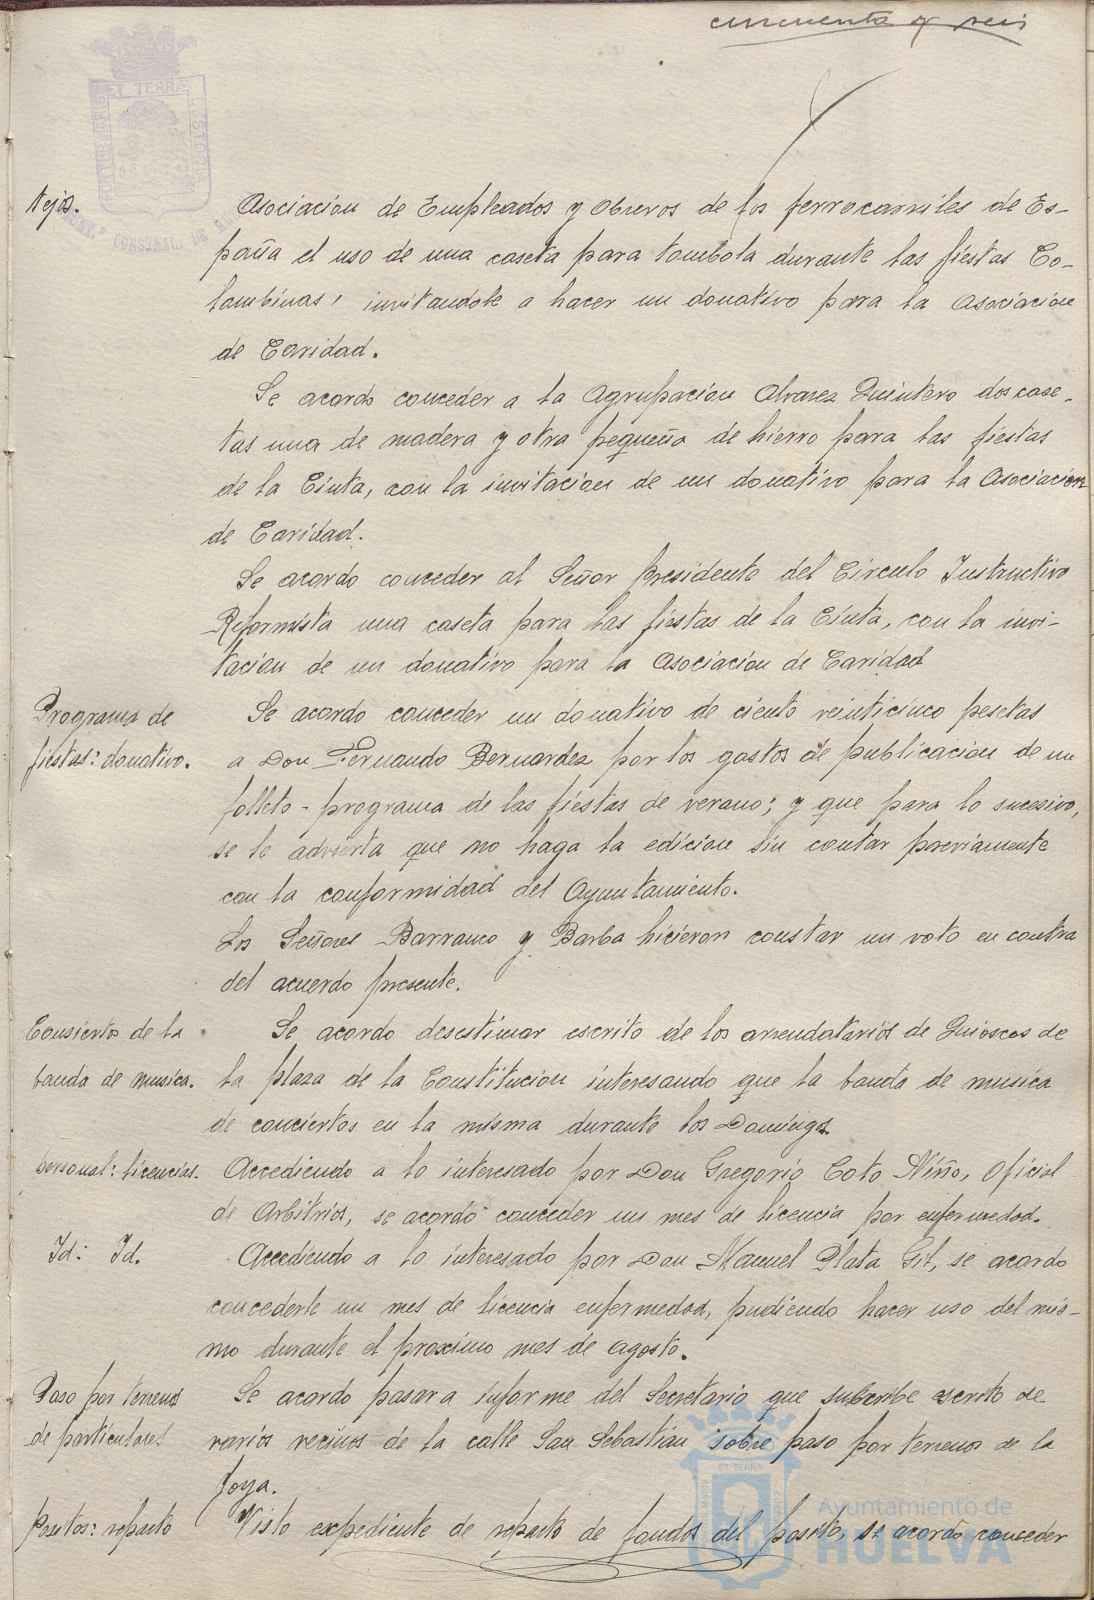 cincuenta y seis
tejos.
Asociacion de Empleados y Obreros de los ferrocarriles de Es-
paña el uso de una caseta para tombola durante las fiestas Co-
lombinas, invitandole a hacer un donativo para la Asociacion
de Caridad.
Se acordo conceder a la Agrupacion Alvarez Quintero dos case-
tas una de madera y otra pequeña de hierro para las fiestas
de la Cinta, con la invitacion de un donativo para la Asociacion
de Caridad.
Se acordo conceder al Señor Presidente del Circulo Instructivo
Reformista una caseta para las fiestas de la Cinta, con la invi-
tacion de un donativo para la Asociacion de Caridad
Programa de
fiestas: donativo.
Se acordo conceder un donativo de ciento veinticinco pesetas
a Don Fernando Bernardez por los gastos de publicacion de un
folleto-programa de las fiestas de verano; y que para lo sucesivo,
se le advierta que no haga la edicion sin contar previamente
con la conformidad del Ayuntamiento.
Los Señores Barranco y Barba hicieron constar un voto en contra
del acuerdo presente.
Consierto de la
banda de musica.
Se acordo desestimar escrito de los arrendatarios de Quioscos de
la plaza de la Constitucion interesando que la banda de musica
de conciertos en la misma durante los Domingos.
personal: licencias.
Accediendo a lo interesado por Don Gregorio Coto Niño, Oficial
de Arbitrios, se acordó conceder un mes de licencia por enfermedad.
Id: Id.
Accediendo a lo interesado por Don Manuel Plata Gil, se acordo
concederle un mes de licencia enfermedad, pudiendo hacer uso del mis-
mo durante el proximo mes de agosto.
Paso por terrenos
de particulares
Se acordo pasar a informe del Secretario que subcribe escrito de
varios vecinos de la calle San Sebastian sobre paso por terrenos de la
Joya.
Positos: reparto
Visto expediente de reparto de fondos del posito, se acordó conceder
Ayuntamiento de
HUELVA